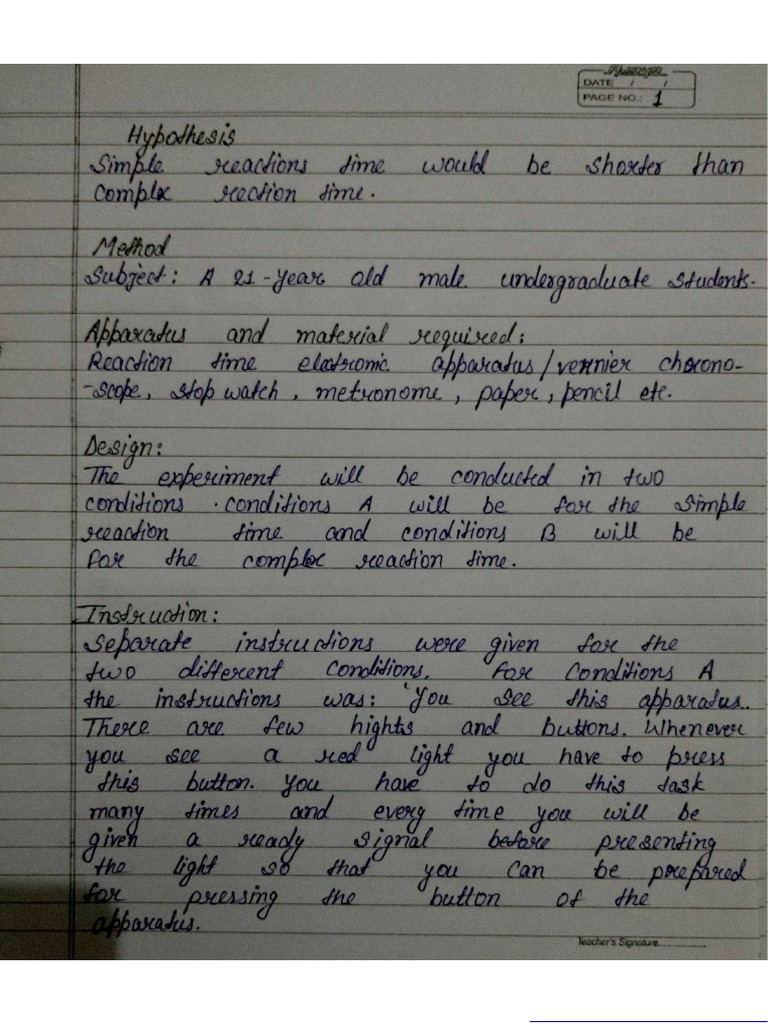 DATE / /
PAGE NO.: 1
Hypothesis
Simple reactions time would be shorter than
complex rection time.
Method
Subject: A 21-year old male undergraduate students.
Apparatus and material required:
Reaction time electronic apparatus/vernier chrono-
-scope, stop watch, metronome, paper, pencil etc.
Design:
The experiment will be conducted in two
conditions. conditions A will be for the simple
reaction time and conditions B will be
for the complex reaction time.
Instruction:
Separate instructions were given for the
two different conditions. For conditions A
the instructions was: 'You see this apparatus.
There are few hights and buttons. Whenever
you see a red light you have to press
this button. You have to do this task
many times and every time you will be
given a ready signal before presenting
the light so that you can be prepared
for pressing the button of the
apparatus.
Teacher's Signature..................